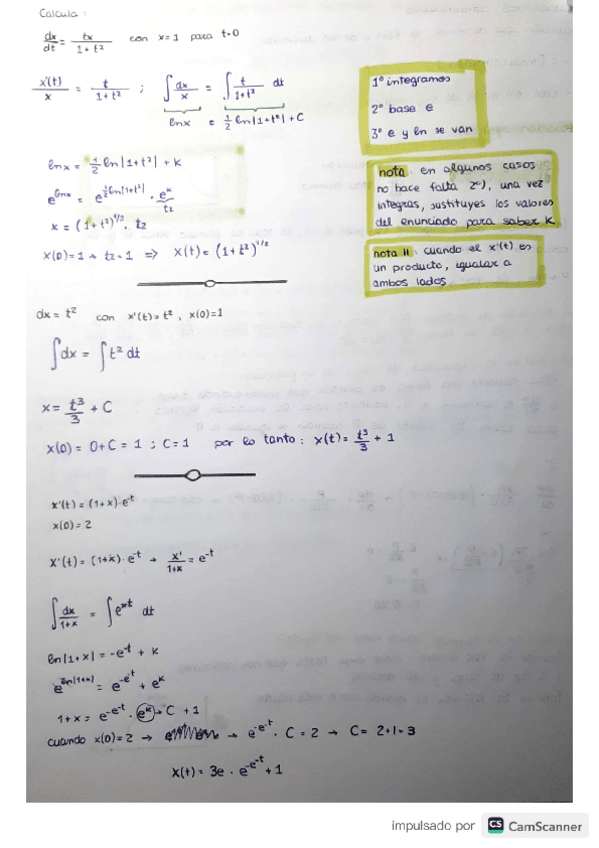 Calcula:
dx/dt = tx/1+t² con x=1 para t=0
x'(t)/x = t/1+t² ; ∫dx/x = ∫t/1+t² dt
lnx = 1/2 ln|1+t²| + C
1º integramos
2º base e
3º e y ln se van
lnx = 1/2 ln|1+t²| + K
e^lnx = e^½ln|1+t²| · e^K
tz
x = (1+t²)^1/2 · tz
x(0)=1 → tz=1 ⇒ x(t) = (1+t²)^1/2
nota: en algunos casos
no hace falta 2º), una vez
integras, sustituyes los valores
del enunciado para saber K.
nota II: cuando el x'(t) es
un producto, igualar a
ambos lados
dx = t² con x'(t)=t², x(0)=1
∫dx = ∫t² dt
x = t³/3 + C
x(0) = 0+C = 1 ; C=1 por lo tanto: x(t) = t³/3 + 1
x'(t) = (1+x)·e^-t
x(0)=2
x'(t) = (1+x)·e^-t → x'/1+x = e^-t
∫dx/1+x = ∫e^-t dt
ln|1+x| = -e^-t + K
e^ln|1+x| = e^-e^-t + e^K
1+x = e^-e^-t · e^K → C +1
cuando x(0)=2 → → e^-e^-t · C = 2 → C = 2+1=3
x(t) = 3e · e^-e^-t +1
impulsado por CS CamScanner